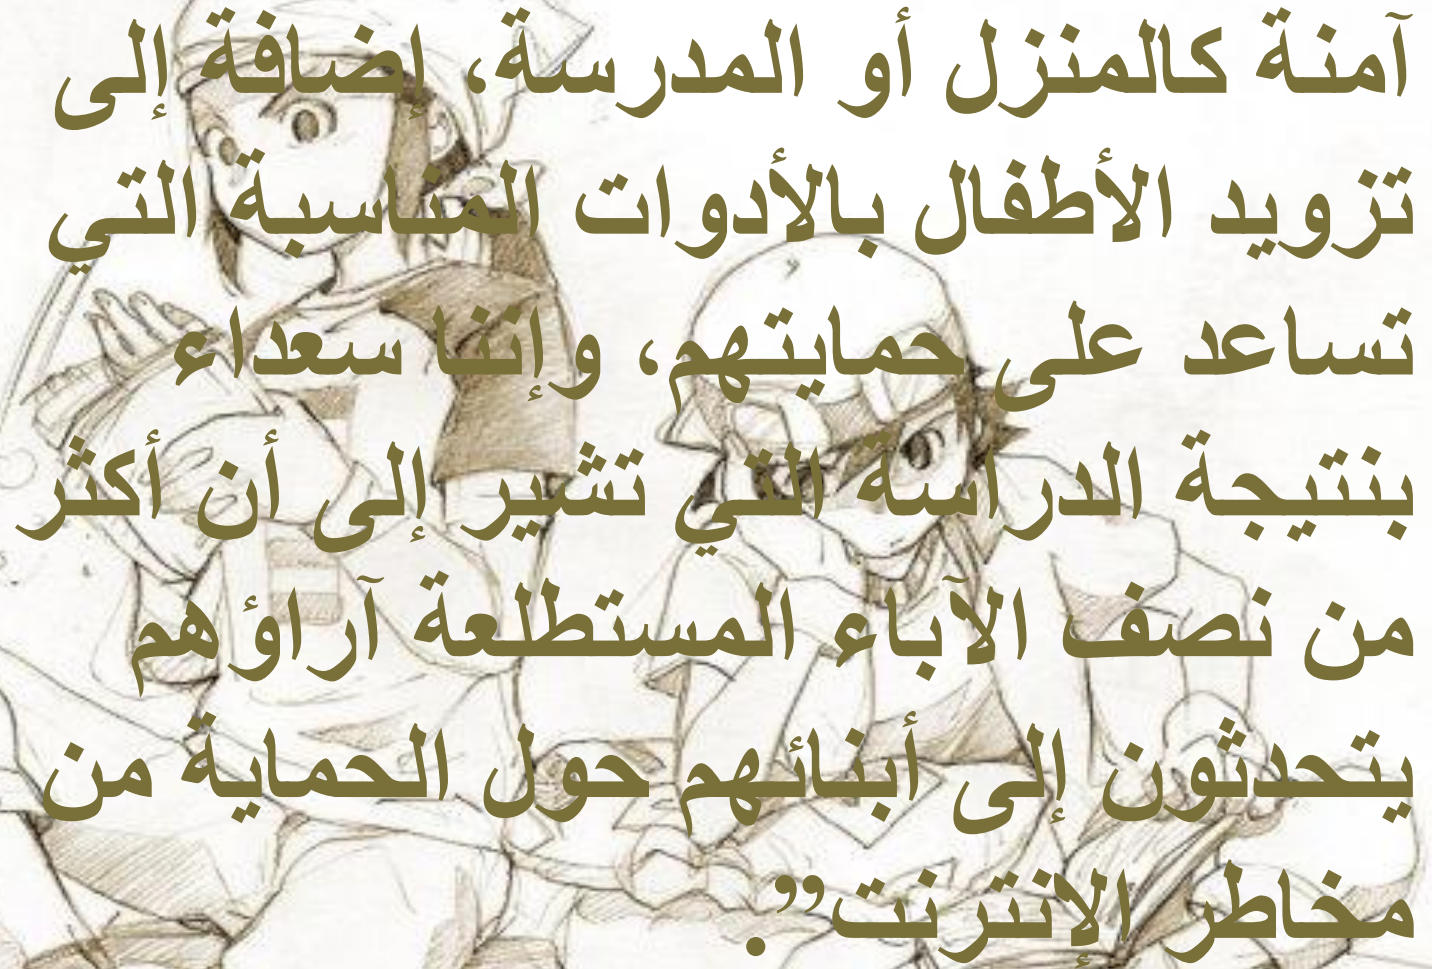 آمنة كالمنزل أو المدرسة، إضافة إلى
تزويد الأطفال بالأدوات المناسبة التي
تساعد على حمايتهم، وإننا سعداء
بنتيجة الدراسة التي تشير إلى أن أكثر
من نصف الآباء المستطلعة آراؤهم
يتحدثون إلى أبنائهم حول الحماية من
مخاطر الإنترنت”.